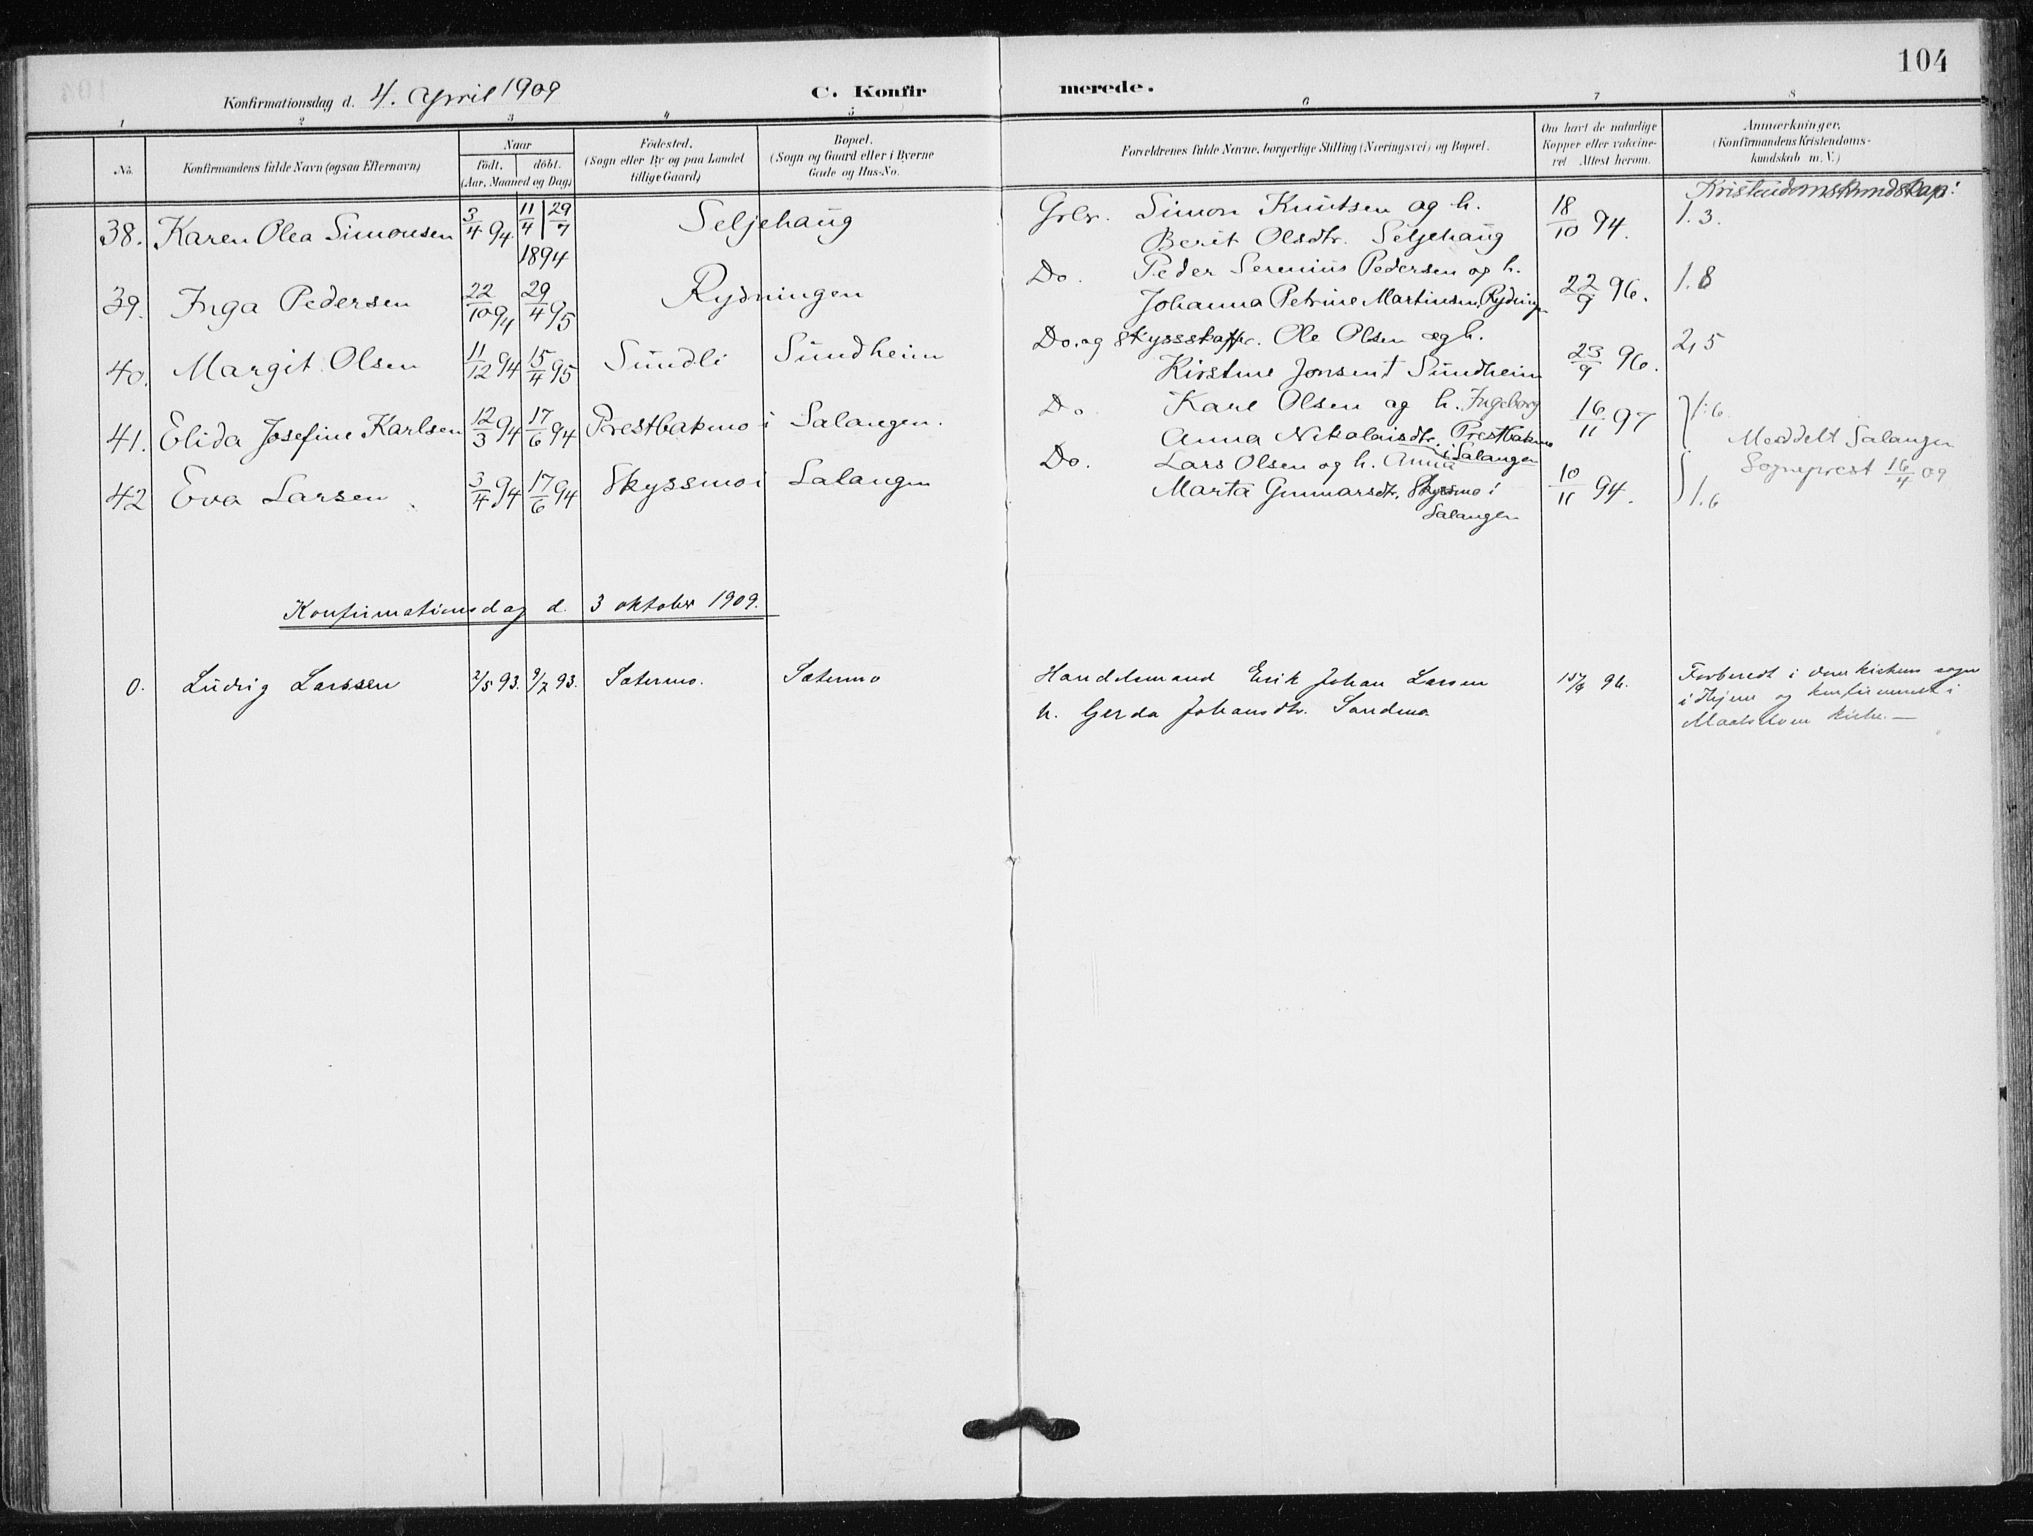 104
Konfirmationsdag d. 4. April 1909
C. Konfirmerede.
1 2 3 4 5 6 7 8
No.
Konfirmandens fulde Navn (ogsaa Efternavn)
Naar
født. døbt.
(Aar, Maaned og Dag)
Fødested.
(Sogn eller By og paa Landet
tillige Gaard)
Bopæl.
(Sogn og Gaard eller i Byerne
Gade og Hus-No.
Forældrenes fulde Navne, borgerlige Stilling (Næringsvei) og Bopæl.
Om havt de naturlige
Kopper eller vakcine-
ret Attest herom.
Anmærkninger.
(Konfirmandens Kristendoms-
kundskab m. V.)
Kristendomskundskap:
38. Karen Olea Simonsen 3/4 94 11/4 | 29/7 1894 Seljehaug Grbr. Simon Knutsen og h. 18/10 94. 1.3.
Berit Olsdtr. Seljehaug
39. Inga Pedersen 22/10 94 29/4 95 Rydningen Do. Peder Serenius Pedersen og h. 22/9 96. 1.8
Johanna Petrine Martinsen,
40. Margit Olsen 11/12 94 15/4 95 Sundli Sundheim Do. og Skyssskaffer. Ole Olsen og h. 23/9 96. 2,5
Kirstine Sundheim
41. Elida Josefine Karlsen 12/3 94 17/6 94 Prestbakmo i Salangen. Do Karl Olsen og h. Ingeborg 16/11 97 1.6
Anna Nikolaisdtr. Prestbakmo
i Salangen
Meddelt Salangen
Sogneprest 16/4 09
42 Eva Larsen 3/4 94 17/6 94 Skyssmo i Salangen Do. Lars Olsen og h. Anna 10/11 94. 1.6
Marta Gunnarsdtr. Skyssmo i
Salangen
Konfirmationsdag d. 3 oktober 1909.
0. Ludvig Larssen 2/5 93. 9/7 93. Sætermo. Sætermo Handelsmand Erik Johan Larsen 96.
h. Gerda Johansdtr. Sandmo
Forberedt i
og i
kirke. —